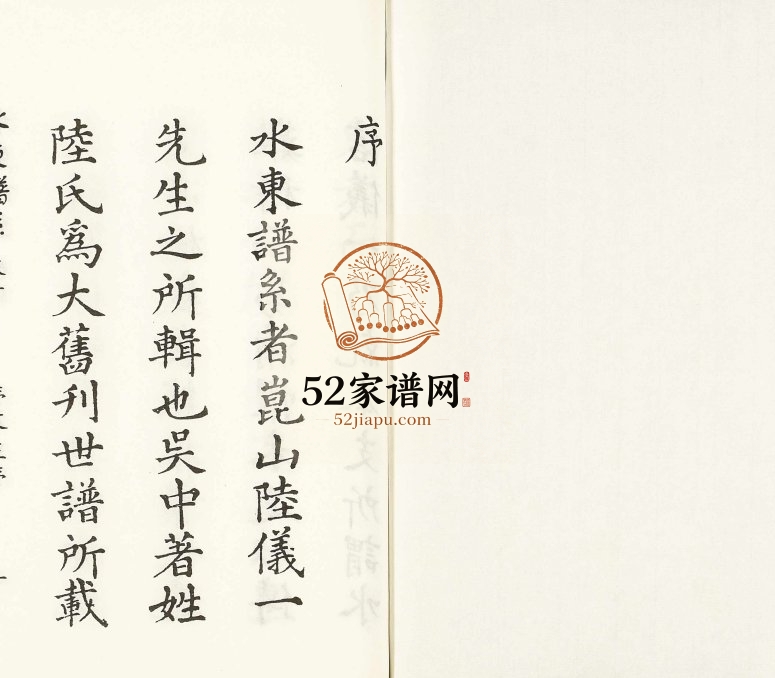 序
水東譜系者崑山陸儀一
先生之所輯也吳中著姓
陸氏爲大舊刊世譜所載
52家谱网
52jiapu.com